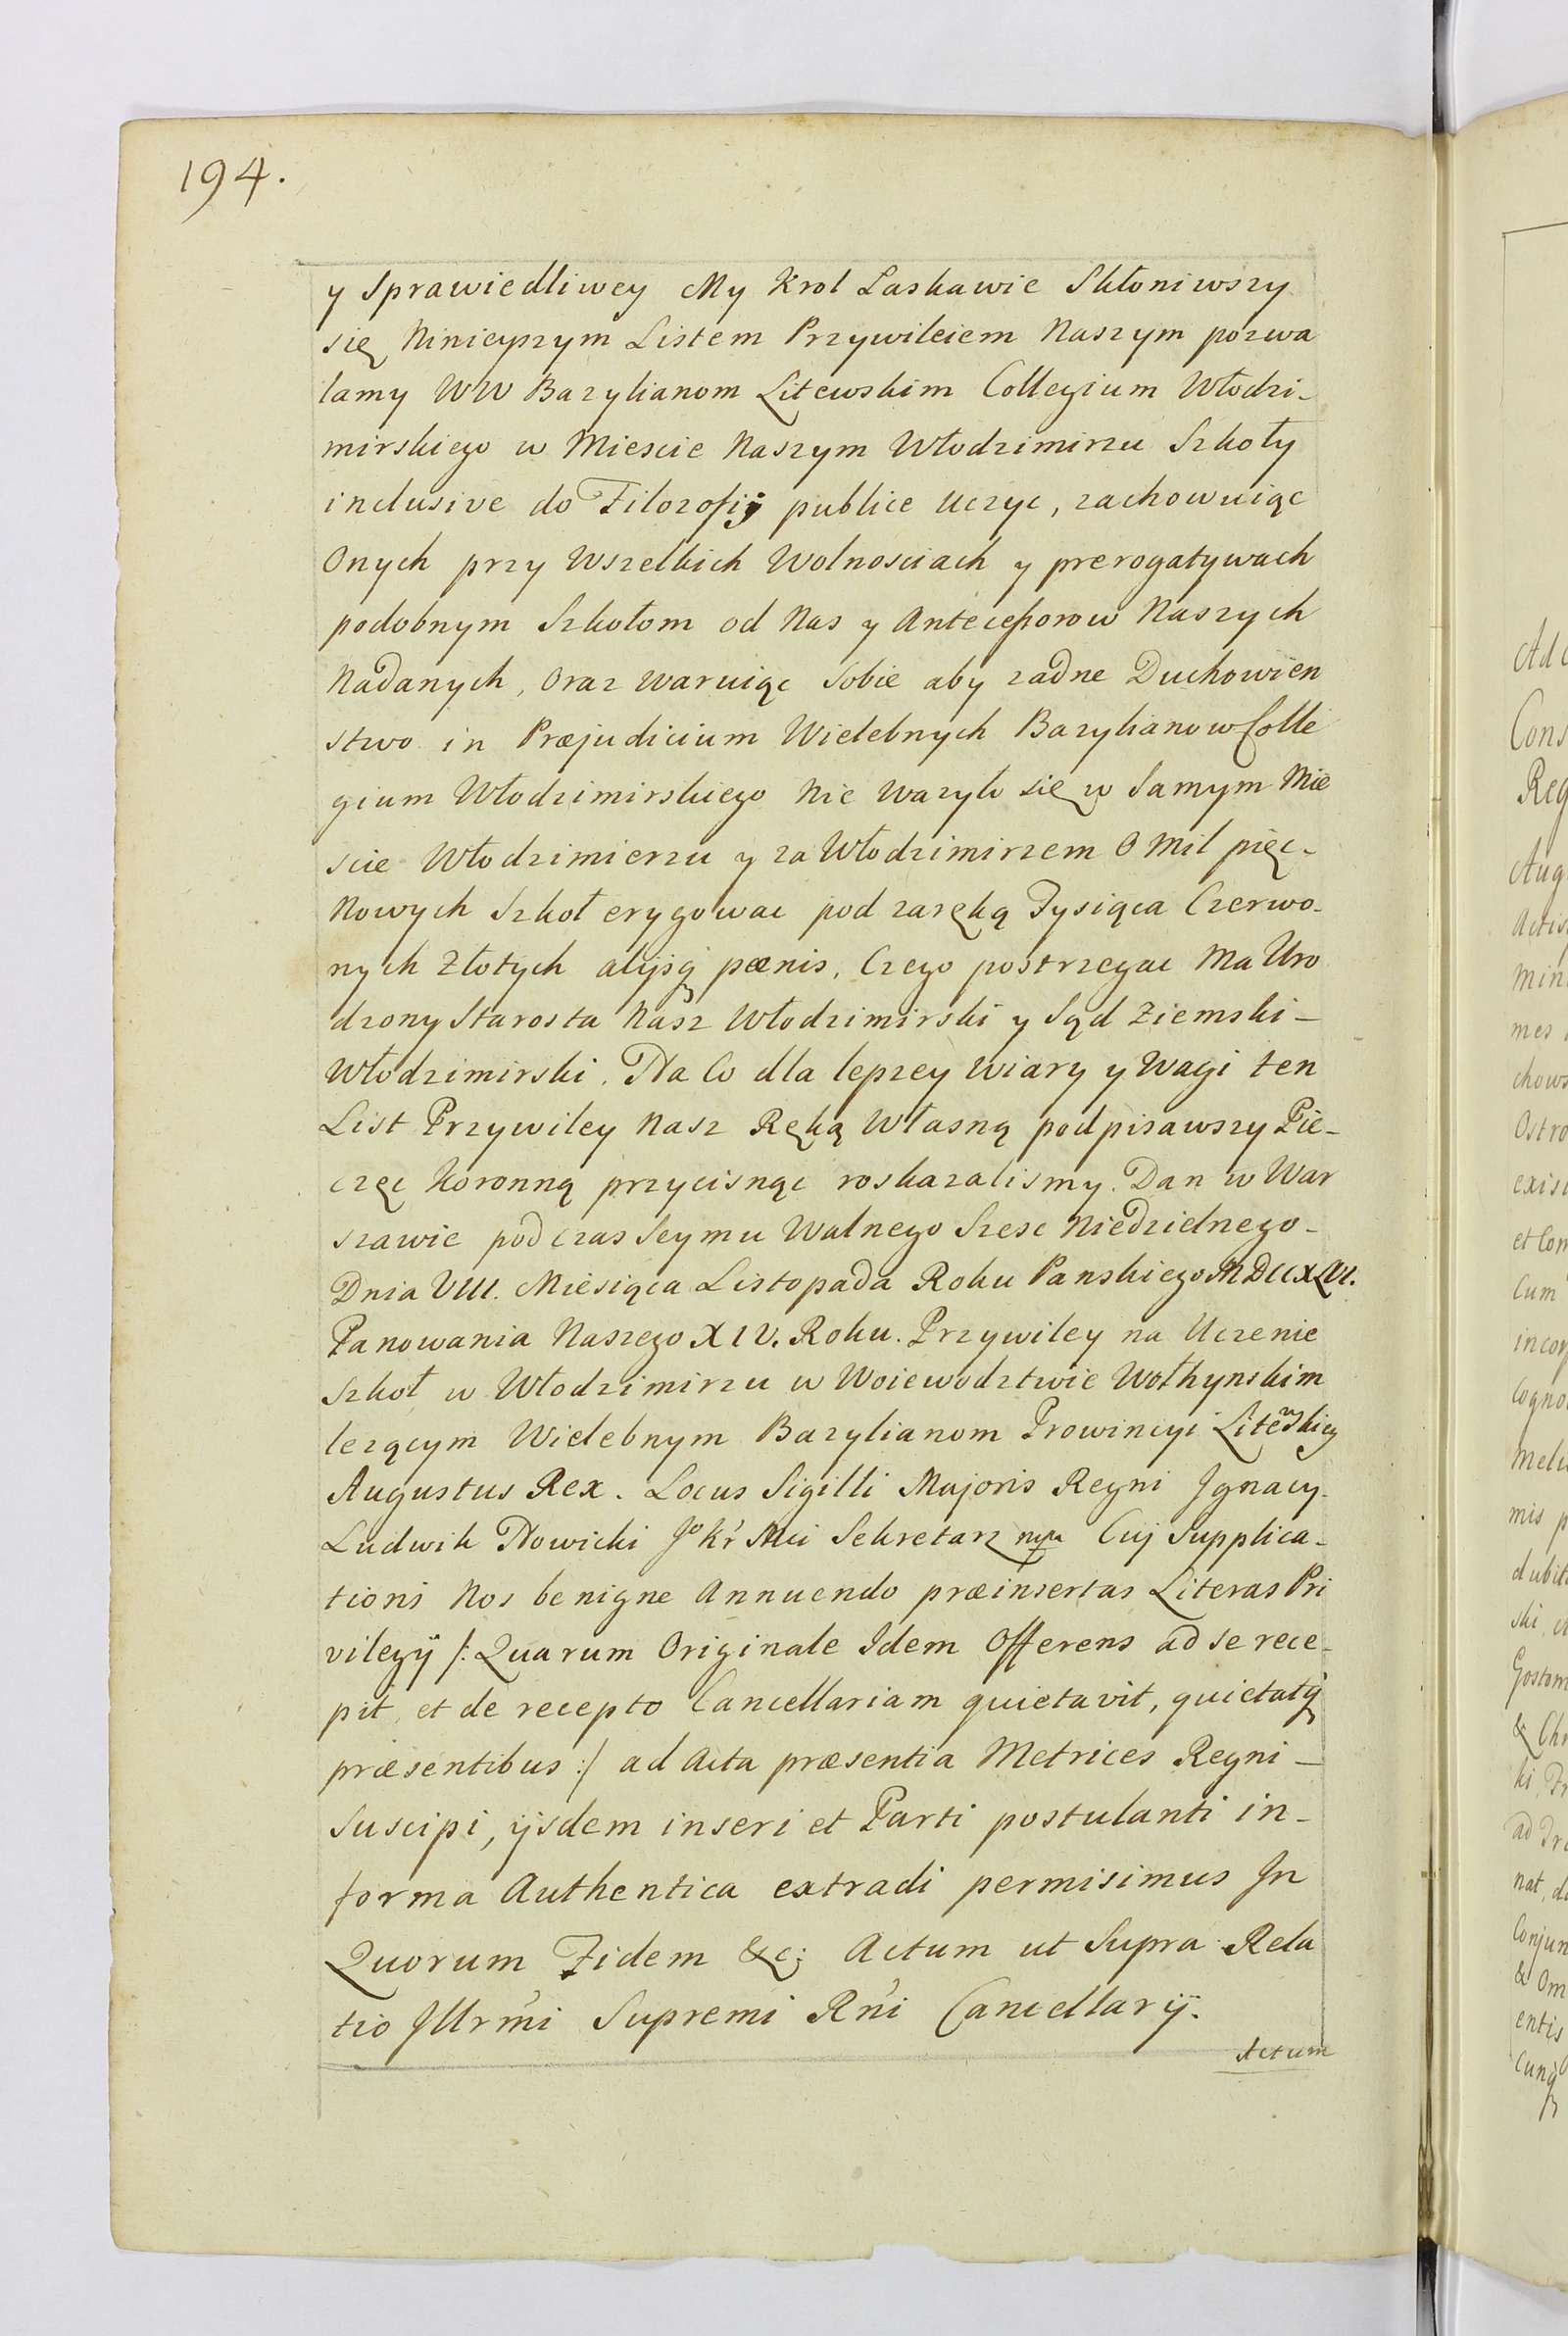 194.
y Sprawiedliwey My Krol Laskawie Skłoniwszy
się Ninieyszym Listem Przywileiem Naszym pozwa
lamy WW Bazylianom Litewskim Collegium Włodzi-
mirskiego w Miescie Naszym Włodzimirzu Szkoły
inclusive do Filozofij publice Uczyc, zachowuiąc
Onych przy Wszelkich Wolnosciach y prerogatywach
podobnym Szkołom od Nas y Antecessorow Naszych
Nadanych, Oraz waruiąc Sobie aby zadne Duchowien
stwo in Præjudicium Wielebnych Bazylianow Colle
gium Włodzimirskiego Nie Wazyło się w Samym Mie
scie Włodzimierzu y za Włodzimirzem O Mil pięc-
Nowych Szkoł erygowac pod zaręką Tysiąca Czerwo-
nych Złotych alijsq pœnis, Czego postrzegac Ma Uro
dzony Starosta Nasz Włodzimirski y Sąd Ziemski-
Włodzimirski. Na Co dla lepzey Wiary y Wagi ten
List Przywiley Nasz Ręką Własną podpisawszy Pie-
częc Koronną przycisnąc roskazalismy. Dan w War
szawie podczas Seymu Walnego Szesc Niedzielnego-
Dnia VIII. Miesiąca Listopada Roku Panskiego MDCCXLVI.
Panowania Naszego XIV. Roku. Przywiley na Uczenie
Szkoł w Włodzimirzu w Woiewodztwie Wołhynskim
lezącym Wielebnym Bazylianom Prowincyi Litewskiey
Augustus Rex. Locus Sigilli Majoris Regni Ignacy-
Ludwik Nowicki Jº Kr Mci Sekretarz mpa Cuj Supplica-
tioni Nos benigne Annuendo præinsertas Literas Pri
vilegij /: Quarum Originale Idem Offerens ad se rece-
pit, et de recepto Cancellariam quietavit, quietatq
præsentibus :/ ad Acta præsentia Metrices Regni-
Suscipi, ijsdem inseri et Parti postulanti in-
forma Authentica extradi permisimus In
Quorum Fidem &c; Actum ut Supra Rela
tio Illrmi Supremi Rni Cancellarij.
Actum
Cons
Reg
Aug
Actis
Min
mes
chows
Ostro
exisi
et Con
Cum
incor
Cogno
mis p
dubit
ski, e
Gostom
& Chr
nat, de
Conjun
& Om
entis
cunq